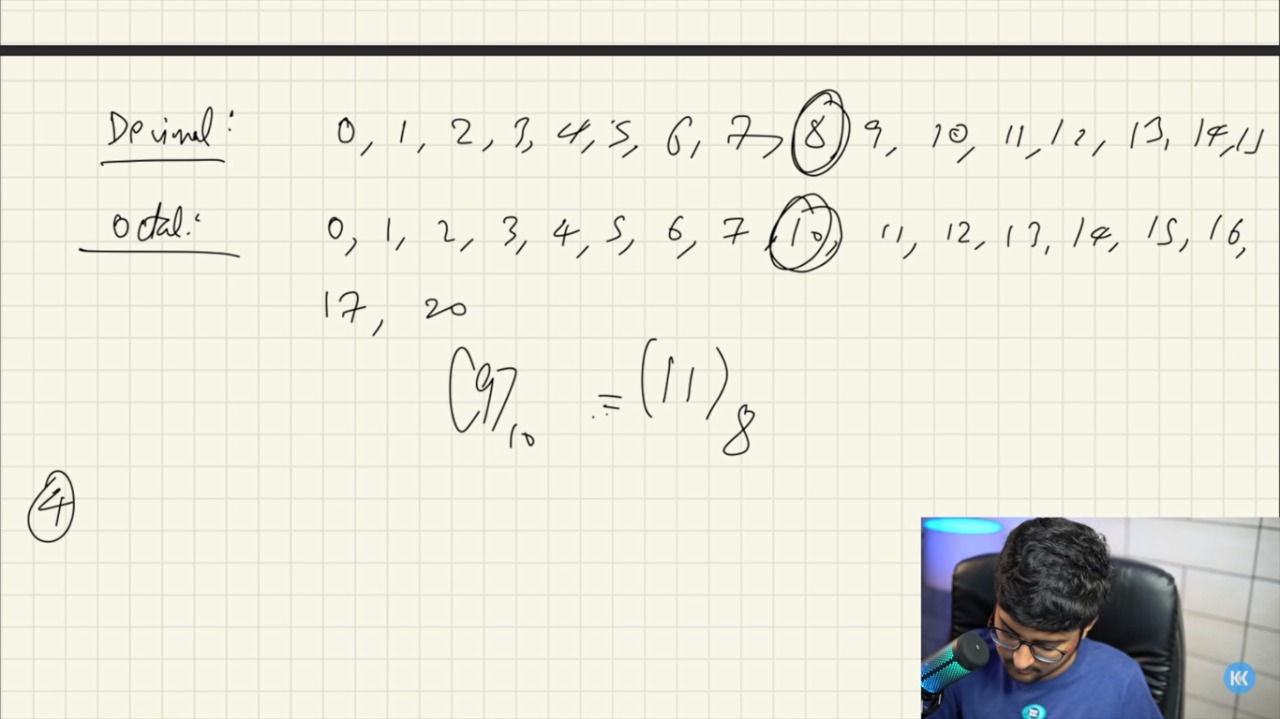 Decimal: 0, 1, 2, 3, 4, 5, 6, 7, 8 9, 10, 11, 12, 13, 14, 15
Octal: 0, 1, 2, 3, 4, 5, 6, 7 10, 11, 12, 13, 14, 15, 16,
17, 20
(9)10 = (11)8
4
KK